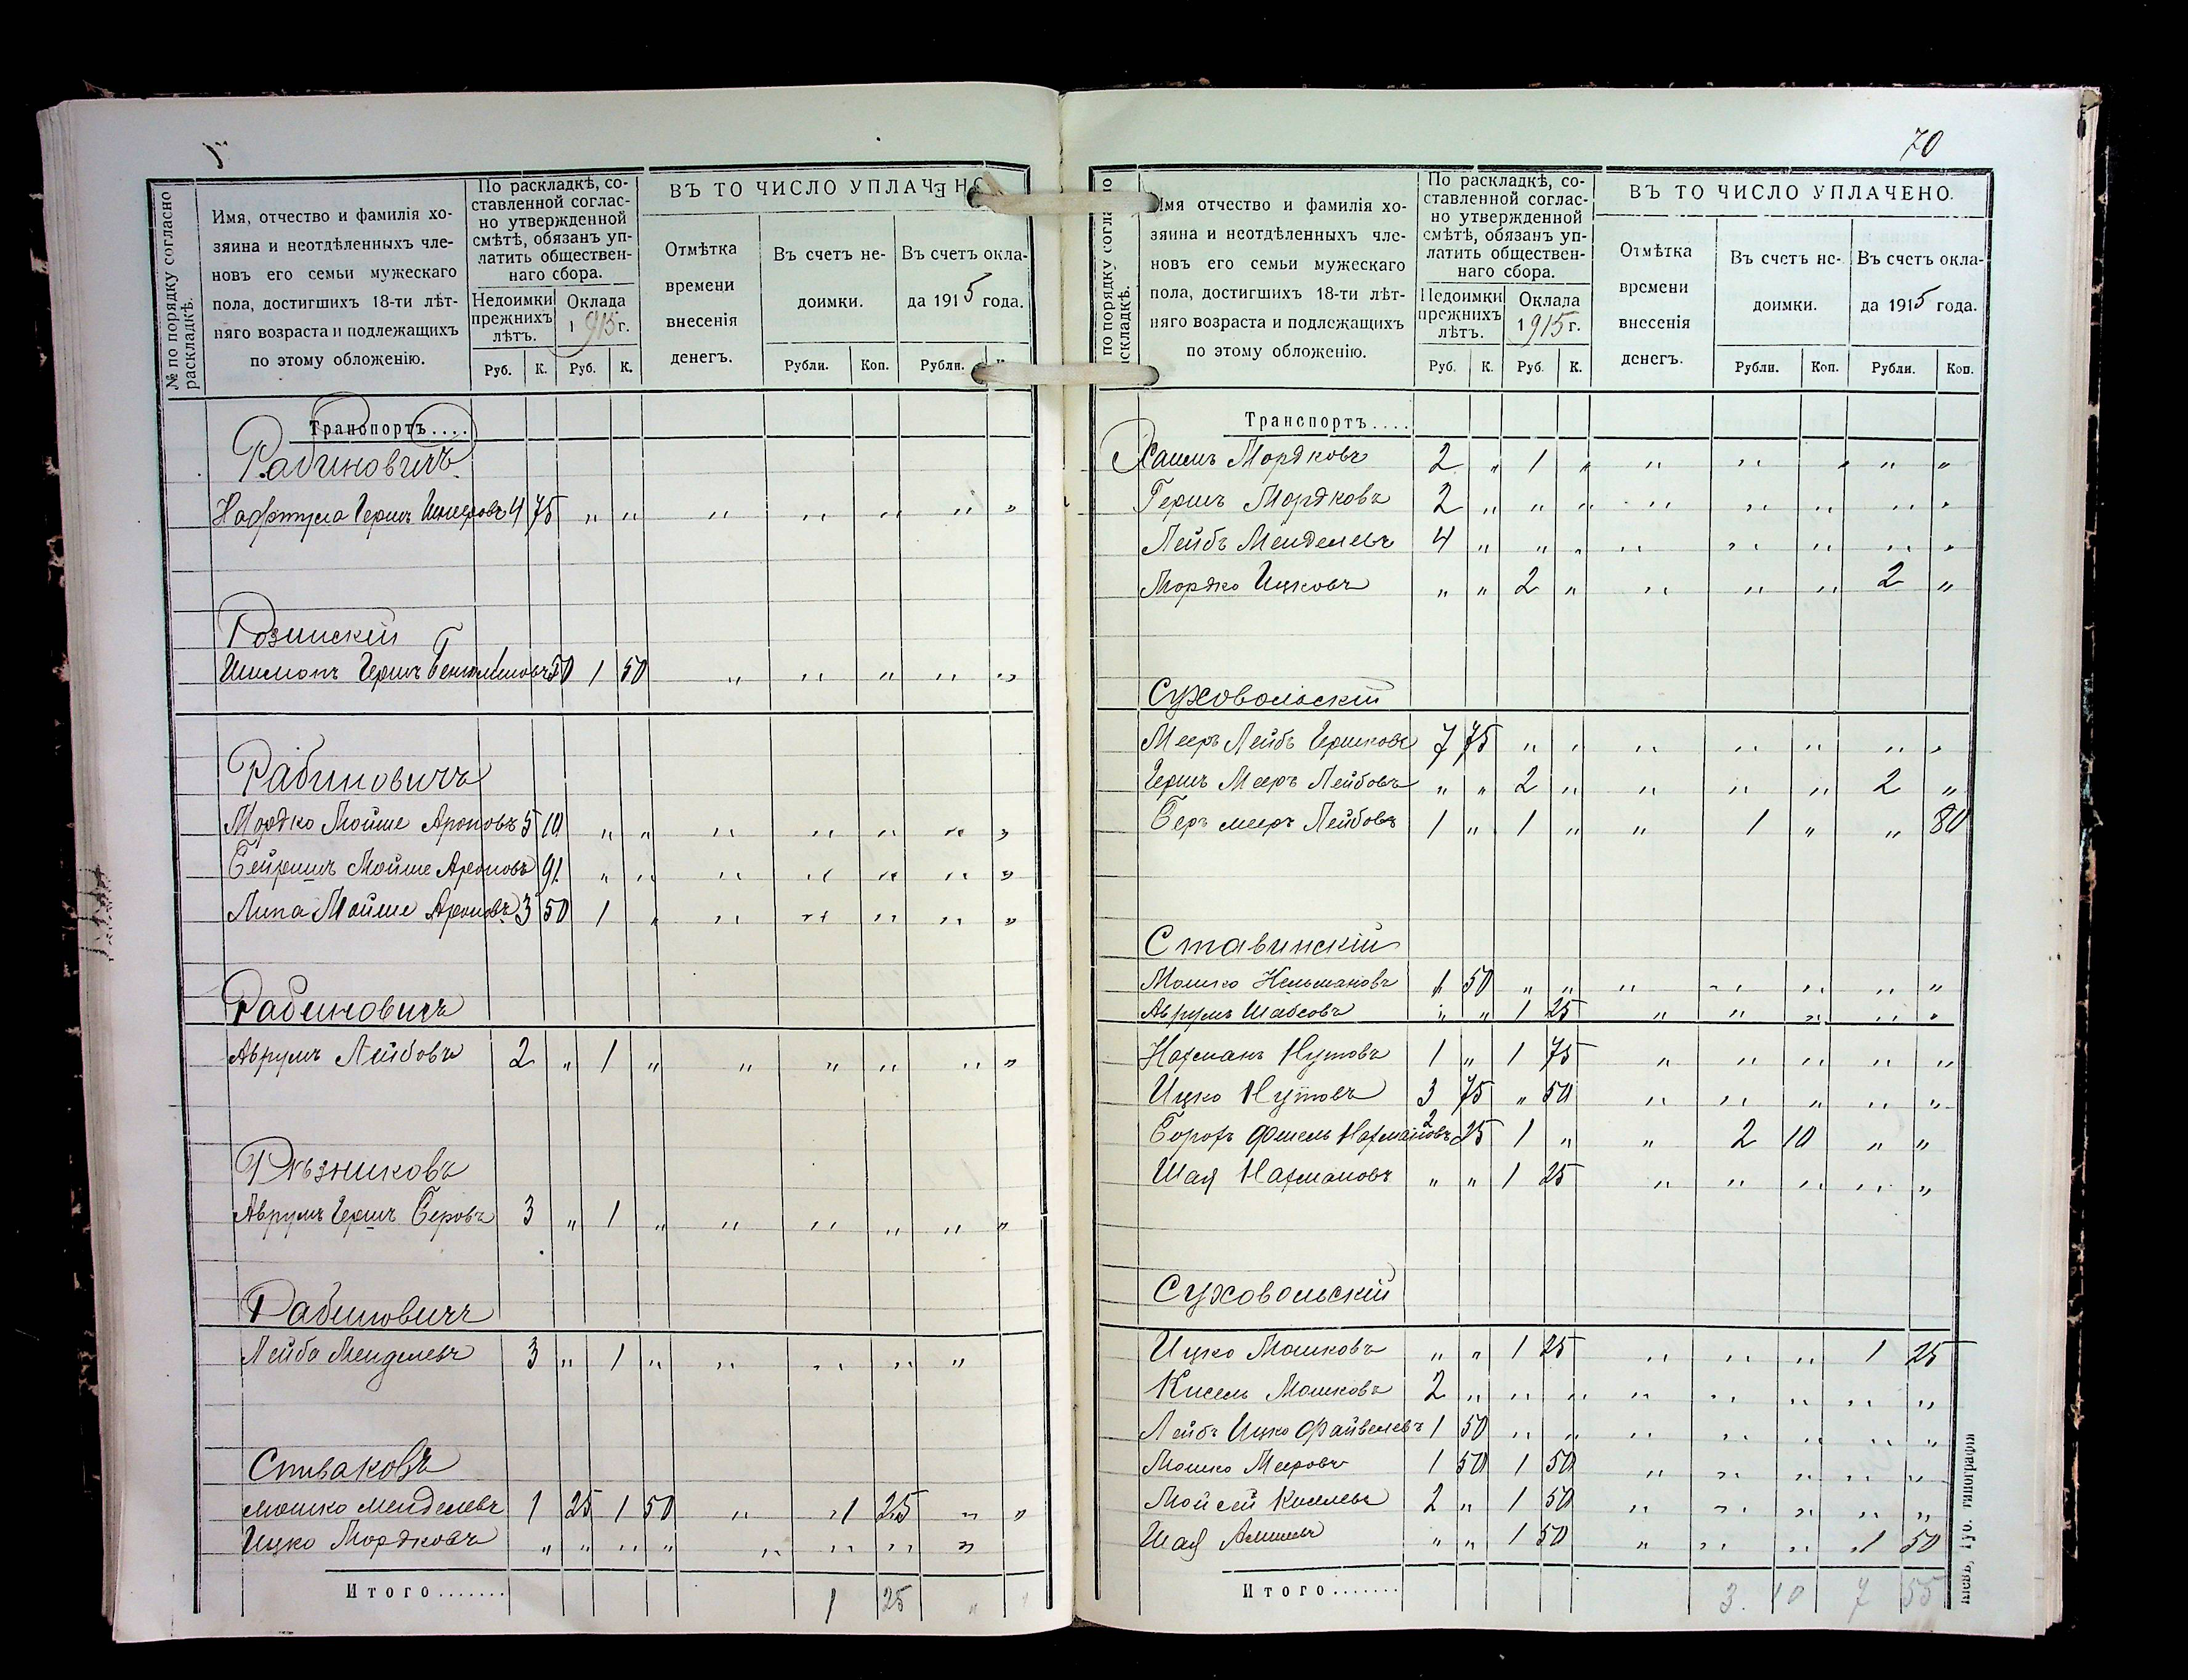 № по порядку согласно раскладкѣ.
Имя, отчество и фамилія хо-
зяина и неотдѣленныхъ чле-
новъ его семьи мужескаго
пола, достигшихъ 18-ти лѣт-
няго возраста и подлежащихъ
по этому обложенію.
По раскладкѣ, со-
ставленной соглас-
но утвержденной
смѣтѣ, обязанъ уп-
латить обществен-
наго сбора.
Недоимки
прежнихъ
лѣтъ.
Оклада
1915 г.
Руб. К. Руб. К.
ВЪ ТО ЧИСЛО УПЛАЧЕНО
Отмѣтка
времени
внесенія
денегъ.
Въ счетъ не-
доимки.
Въ счетъ окла-
да 1915 года.
Рубли. Коп. Рубли.
Транспортъ....
Рабиновичъ
Нафтула Гершъ 4 75 " " " " " " "
Розинскій
Шимонъ Гершъ 50 1 50 " " " " "
Рабиновичъ
Мордко Мойше Ароновъ 5 10 " " " " " " "
Бейришъ Мойше Ароновъ 91 " " " " " " "
Липа Мойше Ароновъ 3 50 1 " " " " " "
Рабиновичъ
Аврумъ Лейбовъ 2 " 1 " " " " " "
Рѣзниковъ
Аврумъ Гершъ Беровъ 3 " 1 " " " " " "
Рабиновичъ
Лейба Менделевъ 3 " 1 " " " " "
Спиваковъ
Мошко Менделевъ 1 25 1 50 " 1 25 " "
Ицко Мордковъ " " " " " " " "
Итого....... 1 25 " "
70
по порядку согласно
раскладкѣ.
Имя отчество и фамилія хо-
зяина и неотдѣленныхъ чле-
новъ его семьи мужескаго
пола, достигшихъ 18-ти лѣт-
няго возраста и подлежащихъ
по этому обложенію.
По раскладкѣ, со-
ставленной соглас-
но утвержденной
смѣтѣ, обязанъ уп-
латить обществен-
наго сбора.
Недоимки
прежнихъ
лѣтъ.
Оклада
1915 г.
Руб. К. Руб. К.
ВЪ ТО ЧИСЛО УПЛАЧЕНО.
Отмѣтка
времени
внесенія
денегъ.
Въ счетъ не-
доимки.
Въ счетъ окла-
да 1915 года.
Рубли. Коп. Рубли. Коп.
Транспортъ....
Хаимъ Мордковъ 2 " 1 " " " " " "
Гершъ Мордковъ 2 " " " " " " " "
Лейбъ Менделевъ 4 " " " " " " " "
Мордко Ицковъ " " 2 " " " " 2 "
Суховольскій
Мееръ Лейбъ Гершковъ 7 75 " " " " " " "
Гершъ Мееръ Лейбовъ " " 2 " " " " 2 "
Беръ Мееръ Лейбовъ 1 " 1 " " 1 " " 80
Ставинскій
Мошко Нельмановъ 1 50 " " " " " " "
Аврумъ Шабсовъ " " 1 25 " " " " "
Нахманъ Нутовъ 1 " 1 75 " " " " "
Ицко Нутовъ 3 75 " 50 " " " " "
Борохъ Фишель Нахмановъ 2 25 1 " " 2 10 " "
Шая Нахмановъ " " 1 25 " " " " "
Суховольскій
Ицко Мошковъ " " 1 25 " " " 1 25
Кисель Мошковъ 2 " " " " " " " "
Лейбъ Ицко Файвелевъ 1 50 " " " " " " "
Мошко Мееровъ 1 50 1 50 " " " " "
Мойсей Киселевъ 2 " 1 50 " " " " "
Шая " " 1 50 " " " 1 50
Итого....... 3. 10 7 55
Кіевъ, Губ. типографія